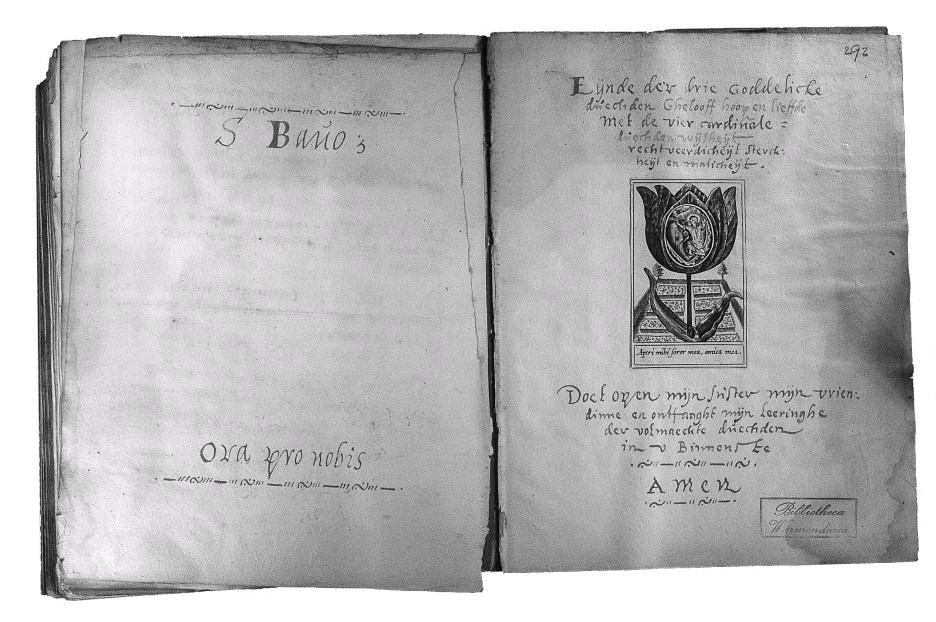 S Bauo
Ora pro nobis
292
Eijnde der drie Goddelicke
duechden Ghelooff hoop en lieffde
Met de vier cardinale =
duechden wijsheijt
rechtveerdicheijt sterck:
heijt en maticheijt.
Aperi mihi soror mea, amica mea.
Doet open mijn suster mijn vrien:
dinne en ontfanght mijn leeringhe
der volmaeckte duechden
in v
Amen
Bibliotheca
Wermondana